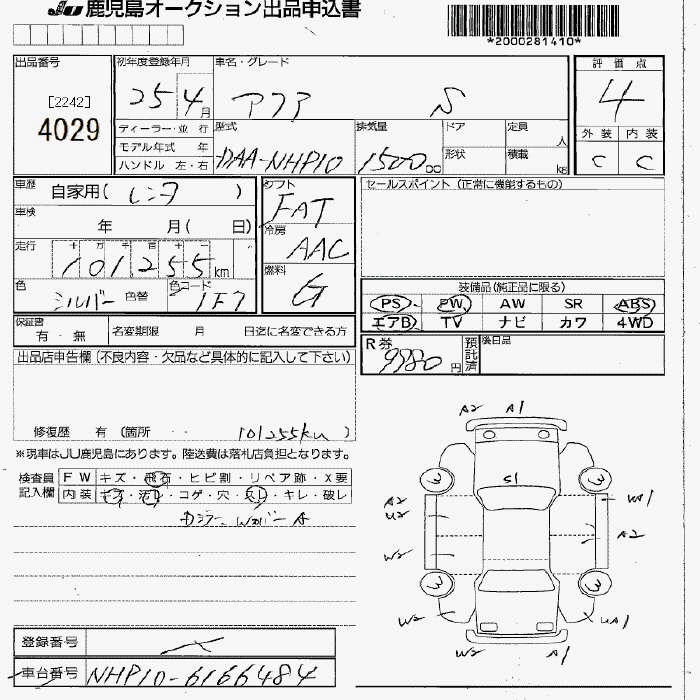 JU 鹿児島オークション出品申込書
*2000281410*
出品番号
[2242]
4029
初年度登録年月
25 4月
車名・グレード
アクア S
評価点
4
外装 内装
C C
ディーラー・並行
モデル年式 年
ハンドル 左・右
型式
DAA-NHP10
排気量
1500cc
ドア
形状
定員 人
積載 kg
車歴
自家用(レンタ)
車検
年 月( 日)
走行
十万千百十一
101255km
色
シルバー 色替
色コード
1F7
シフト
FAT
冷房
AAC
燃料
G
セールスポイント(正常に機能するもの)
装備品(純正品に限る)
PS PW AW SR ABS
エアB TV ナビ カワ 4WD
保証書
有・無
名変期限 月 日迄に名変できる方
R券
9980円
預託済
後日品
出品店申告欄(不良内容・欠品など具体的に記入して下さい)
修復歴 有(箇所 101255km)
※現車はJU鹿児島にあります。陸送費は落札店負担となります。
検査員記入欄
FW キズ・飛石・ヒビ割・リペア跡・X要
内装 キズ・汚レ・コゲ・穴・スレ・キレ・破レ
A2 A1
S1
3 3
A2
U2
UA1
A2
W2
3 3
W2
UA1
W2 A1
登録番号
車台番号
NHP10-6166484